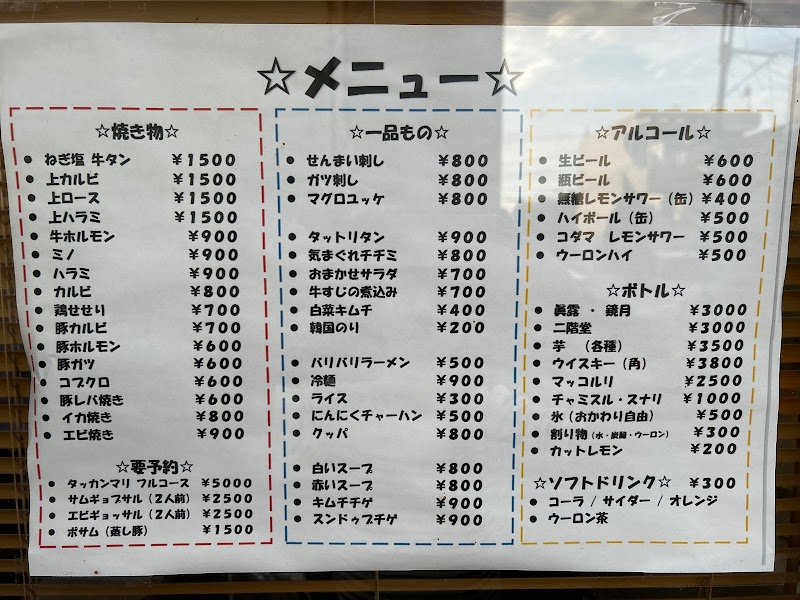 ☆メニュー☆
☆焼き物☆
● ねぎ塩 牛タン ￥1500
● 上カルビ ￥1500
● 上ロース ￥1500
● 上ハラミ ￥1500
● 牛ホルモン ￥900
● ミノ ￥900
● ハラミ ￥900
● カルビ ￥800
● 鶏せせり ￥700
● 豚カルビ ￥700
● 豚ホルモン ￥600
● 豚ガツ ￥600
● コブクロ ￥600
● 豚レバ焼き ￥600
● イカ焼き ￥800
● エビ焼き ￥900
☆要予約☆
● タッカンマリ フルコース ￥5000
● サムギョプサル（2人前）￥2500
● エビギョッサル（2人前）￥2500
● ポサム（蒸し豚） ￥1500
☆一品もの☆
● せんまい刺し ￥800
● ガツ刺し ￥800
● マグロユッケ ￥800
● タットリタン ￥900
● 気まぐれチヂミ ￥800
● おまかせサラダ ￥700
● 牛すじの煮込み ￥700
● 白菜キムチ ￥400
● 韓国のり ￥200
● バリバリラーメン ￥500
● 冷麺 ￥900
● ライス ￥300
● にんにくチャーハン ￥500
● クッパ ￥800
● 白いスープ ￥800
● 赤いスープ ￥800
● キムチチゲ ￥900
● スンドゥブチゲ ￥900
☆アルコール☆
● 生ビール ￥600
● 瓶ビール ￥600
● 無糖レモンサワー（缶）￥400
● ハイボール（缶） ￥500
● コダマ レモンサワー ￥500
● ウーロンハイ ￥500
☆ボトル☆
● 眞露 ・ 鏡月 ￥3000
● 二階堂 ￥3000
● 芋 （各種） ￥3500
● ウイスキー（角） ￥3800
● マッコルリ ￥2500
● チャミスル・スナリ ￥1000
● 氷（おかわり自由） ￥500
● 割り物（水・炭酸・ウーロン） ￥300
● カットレモン ￥200
☆ソフトドリンク☆ ￥300
● コーラ / サイダー / オレンジ
● ウーロン茶